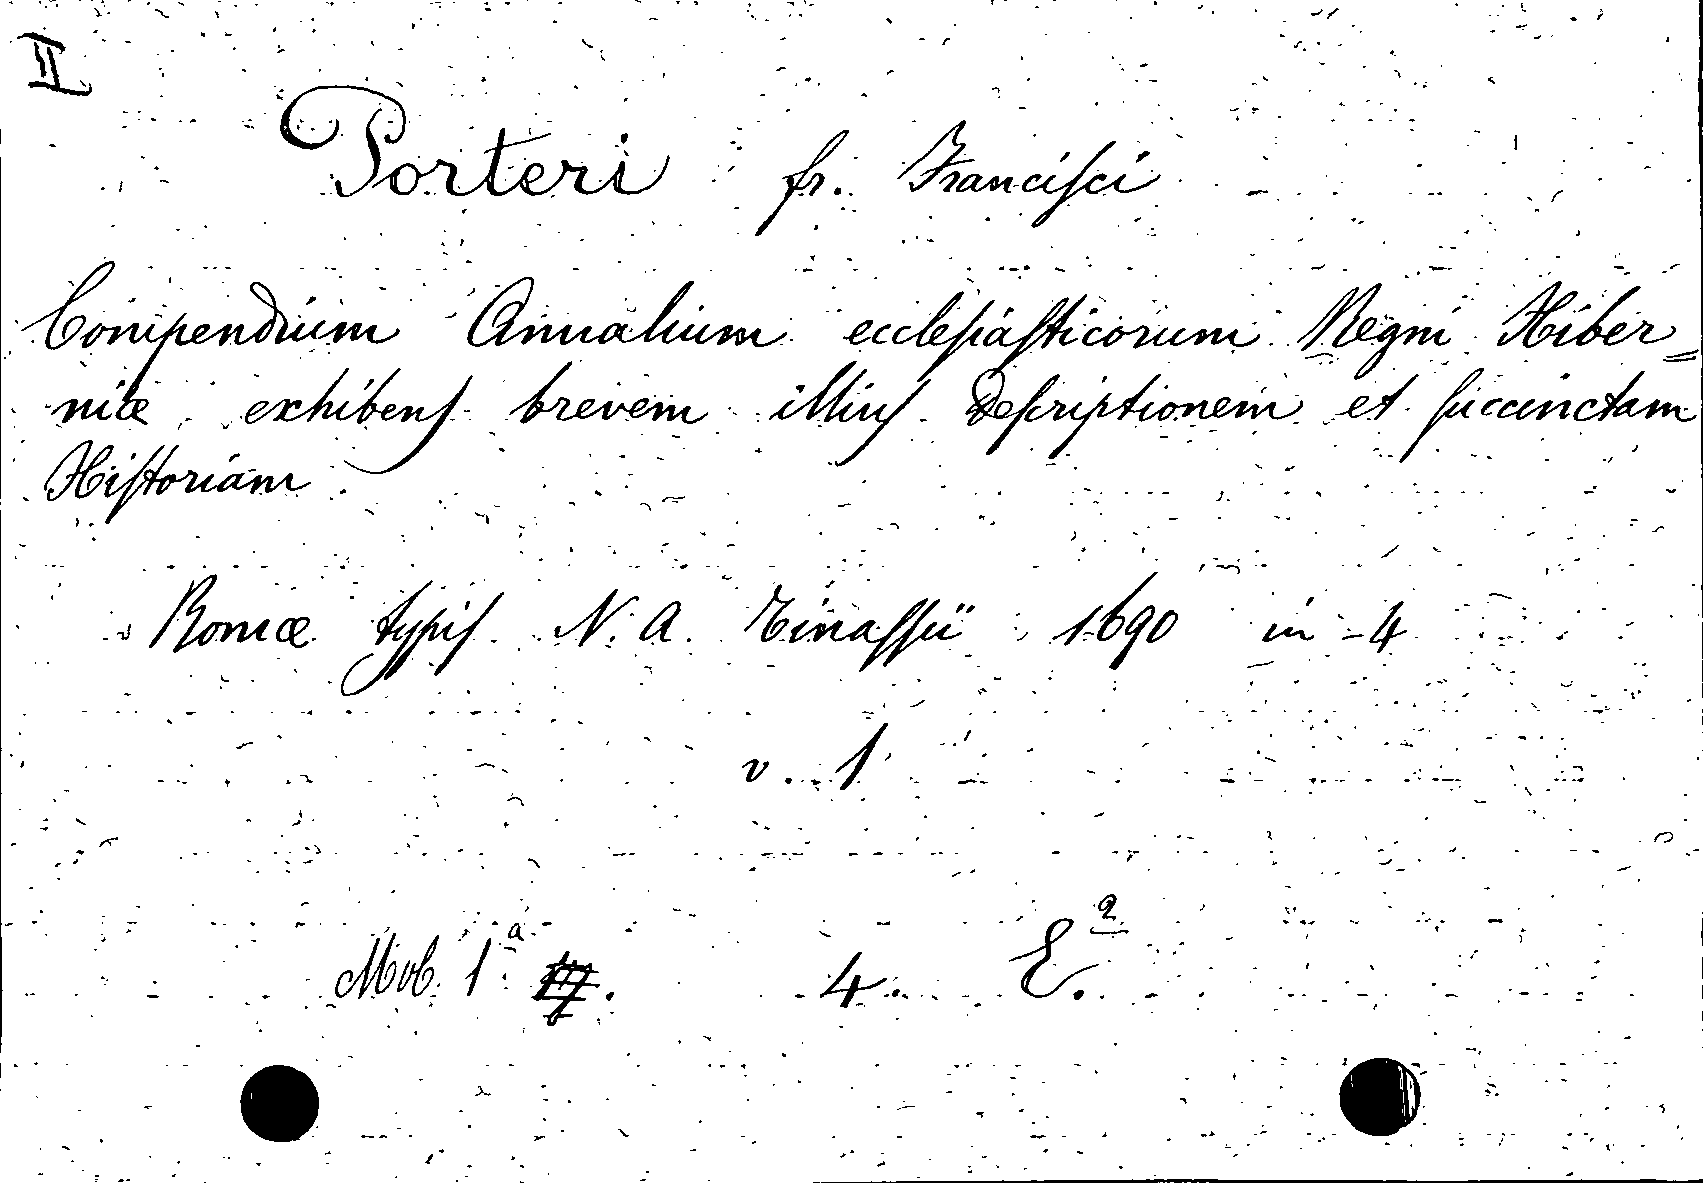 II
Porteri fr. Franciſci
Compendium Annalium eccleſiaſticorum Regni Hiber=
niæ exhibens brevem illius Deſcriptionem et ſuccinctam
Hiſtoriam
Romæ typis N. A. Tinaſſii 1690 in-4
v. 1
Mob. 1.a 4. E.2